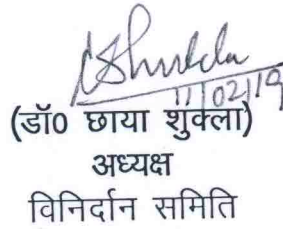 CShukla
11/02/19
(डॉ0 छाया शुक्ला)
अध्यक्ष
विनिर्दान समिति